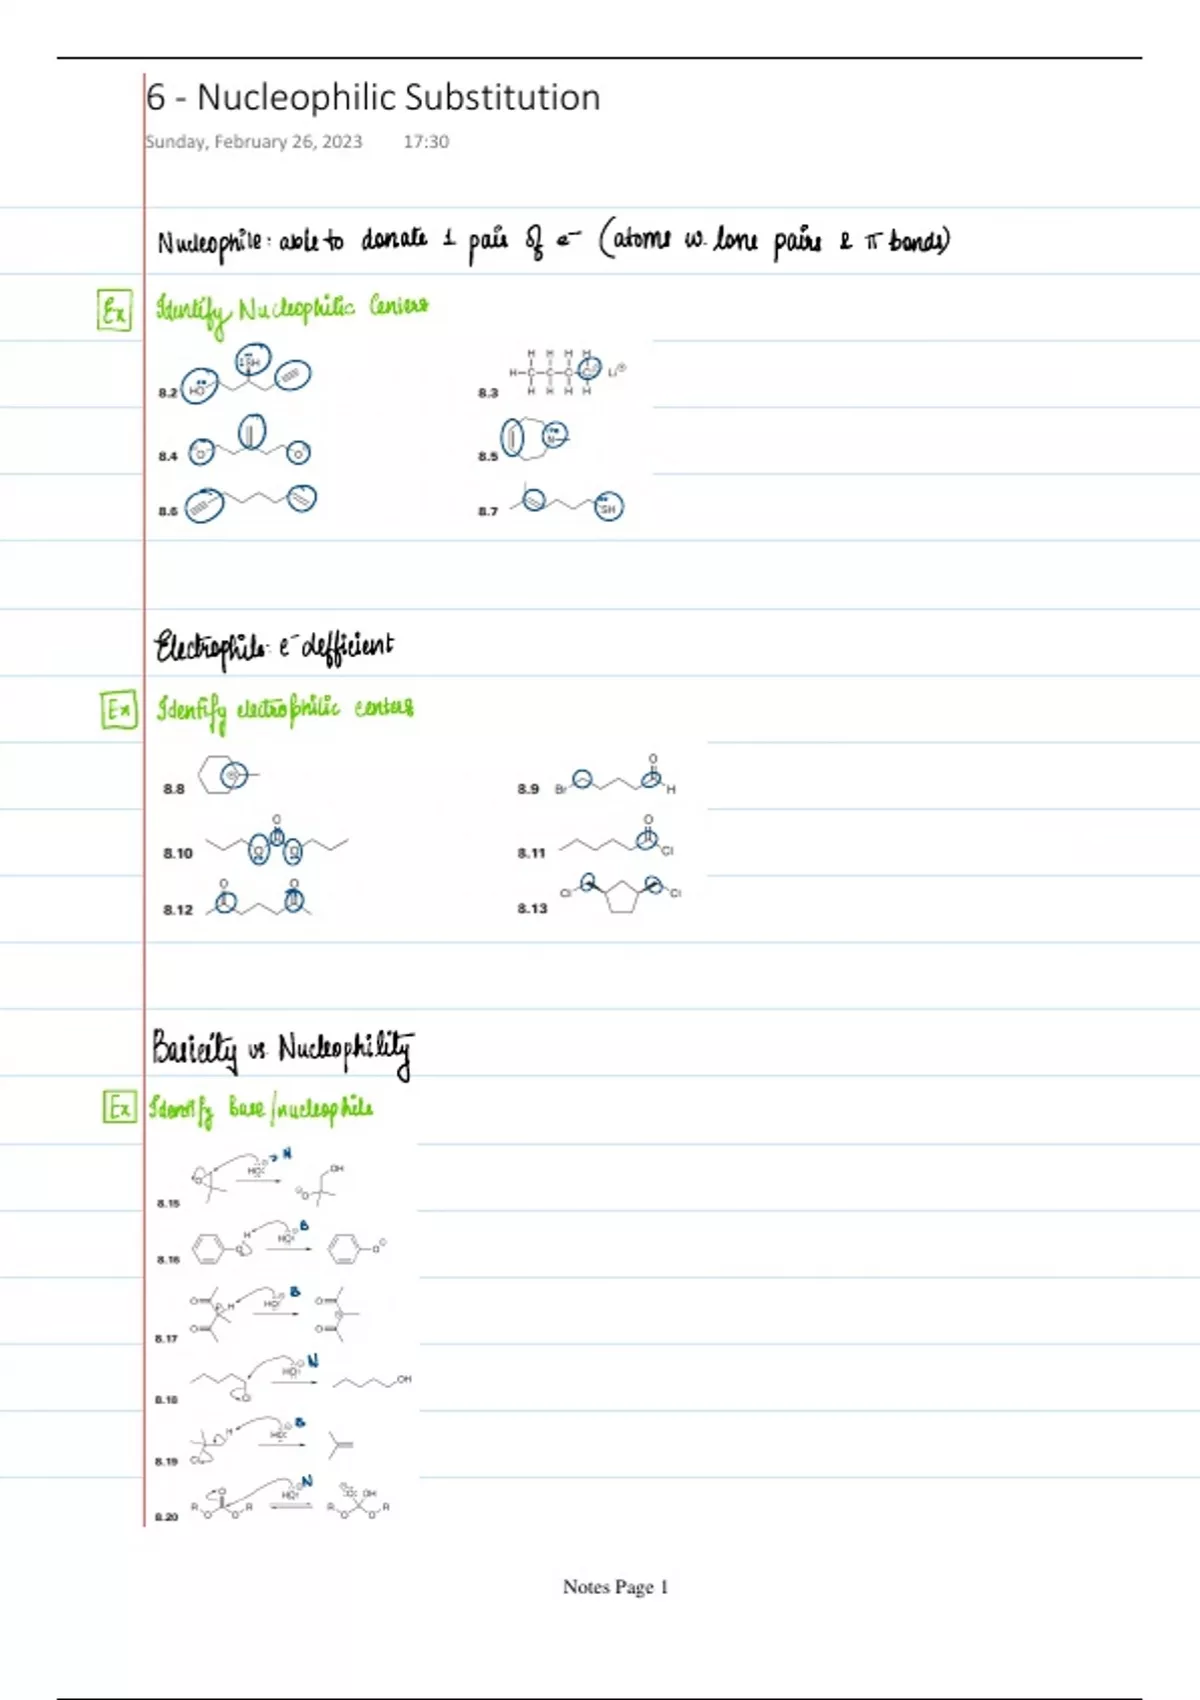 6 - Nucleophilic Substitution
Sunday, February 26, 2023 17:30
Nucleophile: able to donate 1 pair of e⁻ (atoms w. lone pairs & π bonds)
Ex Identify Nucleophilic Centers
SH
HO
8.2
H H H H
H-C-C-C-C Li⊕
H H H H
8.3
O O
8.4
N
8.5
8.6
SH
8.7
Electrophile: e⁻ defficient
Ex Identify electrophilic centers
8.8
O
Br H
8.9
O
O O
8.10
O
Cl
8.11
O O
8.12
Cl Cl
8.13
Basicity vs. Nucleophility
Ex Identify base/nucleophile
N
O HO OH
O
8.15
B
H HO
O O
8.16
B
O H HO O
O O
8.17
N
HO OH
Cl
8.18
B
H HO
Cl
8.19
N
O HO O OH
R O O R R O O R
8.20
Notes Page 1